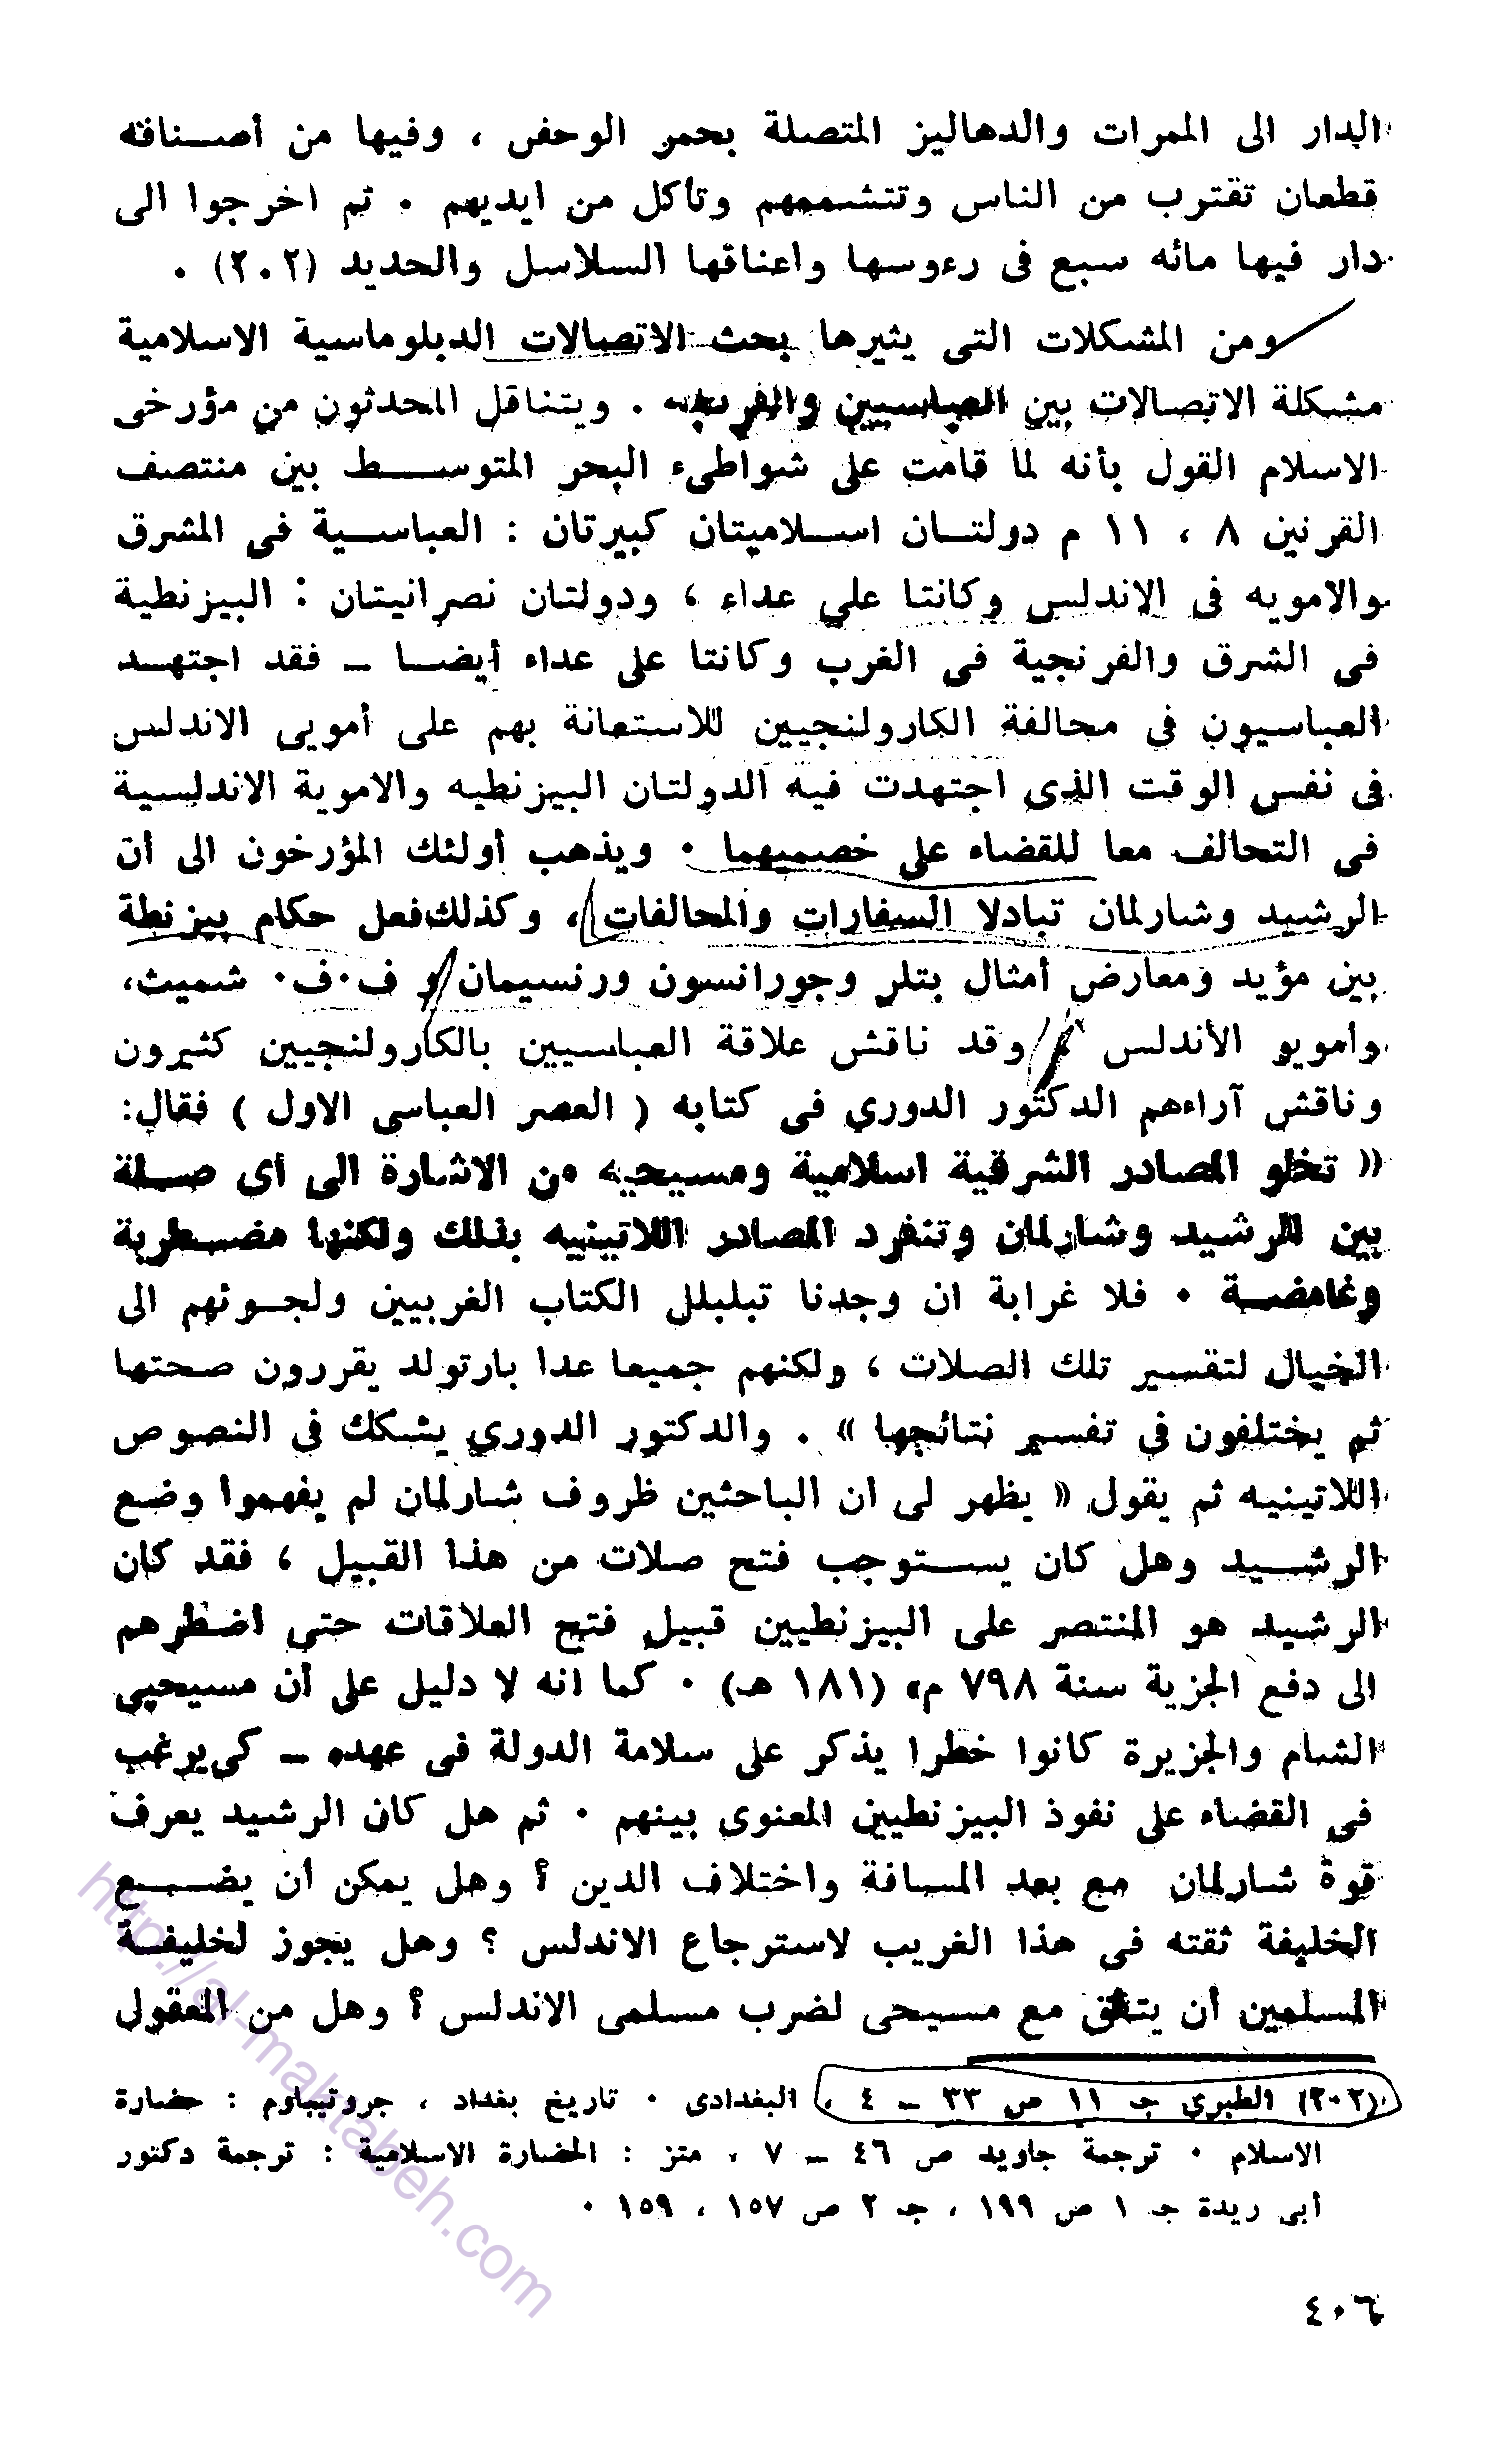 الدار الى الممرات والدهاليز المتصلة بحمر الوحش ، وفيها من أصـنافه
قطعان تقترب من الناس وتتشممهم وتأكل من ايديهم ٠ ثم اخرجوا الى
دار فيها مائه سبع فى رءوسها واعناقها السلاسل والحديد (٢٠٢) ٠
ومن المشكلات التى يثيرها بحث الاتصالات الدبلوماسية الاسلامية
مشكلة الاتصالات بين العباسيين والفرنجه ٠ ويتناقل المحدثون من مؤرخى
الاسلام القول بأنه لما قامت على شواطىء البحر المتوسـط بين منتصف
القرنين ٨ ، ١١ م دولتـان اسـلاميتان كبيرتان : العباسـية فى المشرق
والامويه فى الاندلس وكانتا على عداء ، ودولتان نصرانيتان : البيزنطية
فى الشرق والفرنجية فى الغرب وكانتا على عداء أيضـا ــ فقد اجتهـد
العباسيون فى محالفة الكارولنجيين للاستعانة بهم على أمويى الاندلس
فى نفس الوقت الذى اجتهدت فيه الدولتان البيزنطيه والاموية الاندلسية
فى التحالف معا للقضاء على خصميهما ٠ ويذهب أولئك المؤرخون الى أن
الرشيد وشارلمان تبادلا السفارات والمحالفات ، وكذلك فعل حكام بيزنطة
بين مؤيد ومعارض أمثال بتلر وجورانسون ورنسيمان و ف٠ف٠ شميث،
وأمويو الأندلس ٠ وقد ناقش علاقة العباسيين بالكارولنجيين كثيرون
وناقش آراءهم الدكتور الدوري فى كتابه ( العصر العباسى الاول ) فقال:
« تخلو المصادر الشرقية اسلامية ومسيحيه من الاشارة الى أى صـلة
بين الرشيد وشارلمان وتنفرد المصادر اللاتينيه بذلك ولكنها مضـطربة
وغامضـة ٠ فلا غرابة ان وجدنا تبلبلل الكتاب الغربيين ولجـوئهم الى
الخيال لتفسير تلك الصلات ، ولكنهم جميعا عدا بارتولد يقررون صحتها
ثم يختلفون فى تفسير نتائجها » ٠ والدكتور الدوري يشكك فى النصوص
اللاتينيه ثم يقول « يظهر لى ان الباحثين ظروف شارلمان لم يفهموا وضع
الرشـيد وهل كان يسـتوجب فتح صلات من هذا القبيل ، فقد كان
الرشيد هو المنتصر على البيزنطيين قبيل فتح العلاقات حتى اضطرهم
الى دفع الجزية سنة ٧٩٨ م» (١٨١ هـ) ٠ كما انه لا دليل على أن مسيحيى
الشام والجزيرة كانوا خطرا يذكر على سلامة الدولة فى عهده ــ كى يرغب
فى القضاء على نفوذ البيزنطيين المعنوى بينهم ٠ ثم هل كان الرشيد يعرف
قوة شارلمان مع بعد المسافة واختلاف الدين ؟ وهل يمكن أن يضـع
الخليفة ثقته فى هذا الغريب لاسترجاع الاندلس ؟ وهل يجوز لخليفـة
المسلمين أن يتفق مع مسيحى لضرب مسلمى الاندلس ؟ وهل من المعقول
(٢٠٢) الطبري جـ ١١ ص ٣٣ ــ ٤ ، البغدادى ٠ تاريخ بغداد ، جرونيباوم : حضارة
الاسلام ٠ ترجمة جاويد ص ٤٦ ــ ٧ ، متز : الحضارة الاسلامية : ترجمة دكتور
أبى ريدة جـ ١ ص ١٩٩ ، جـ ٢ ص ١٥٧ ، ١٥٩ ٠
٤٠٦
http://al-maktabeh.com